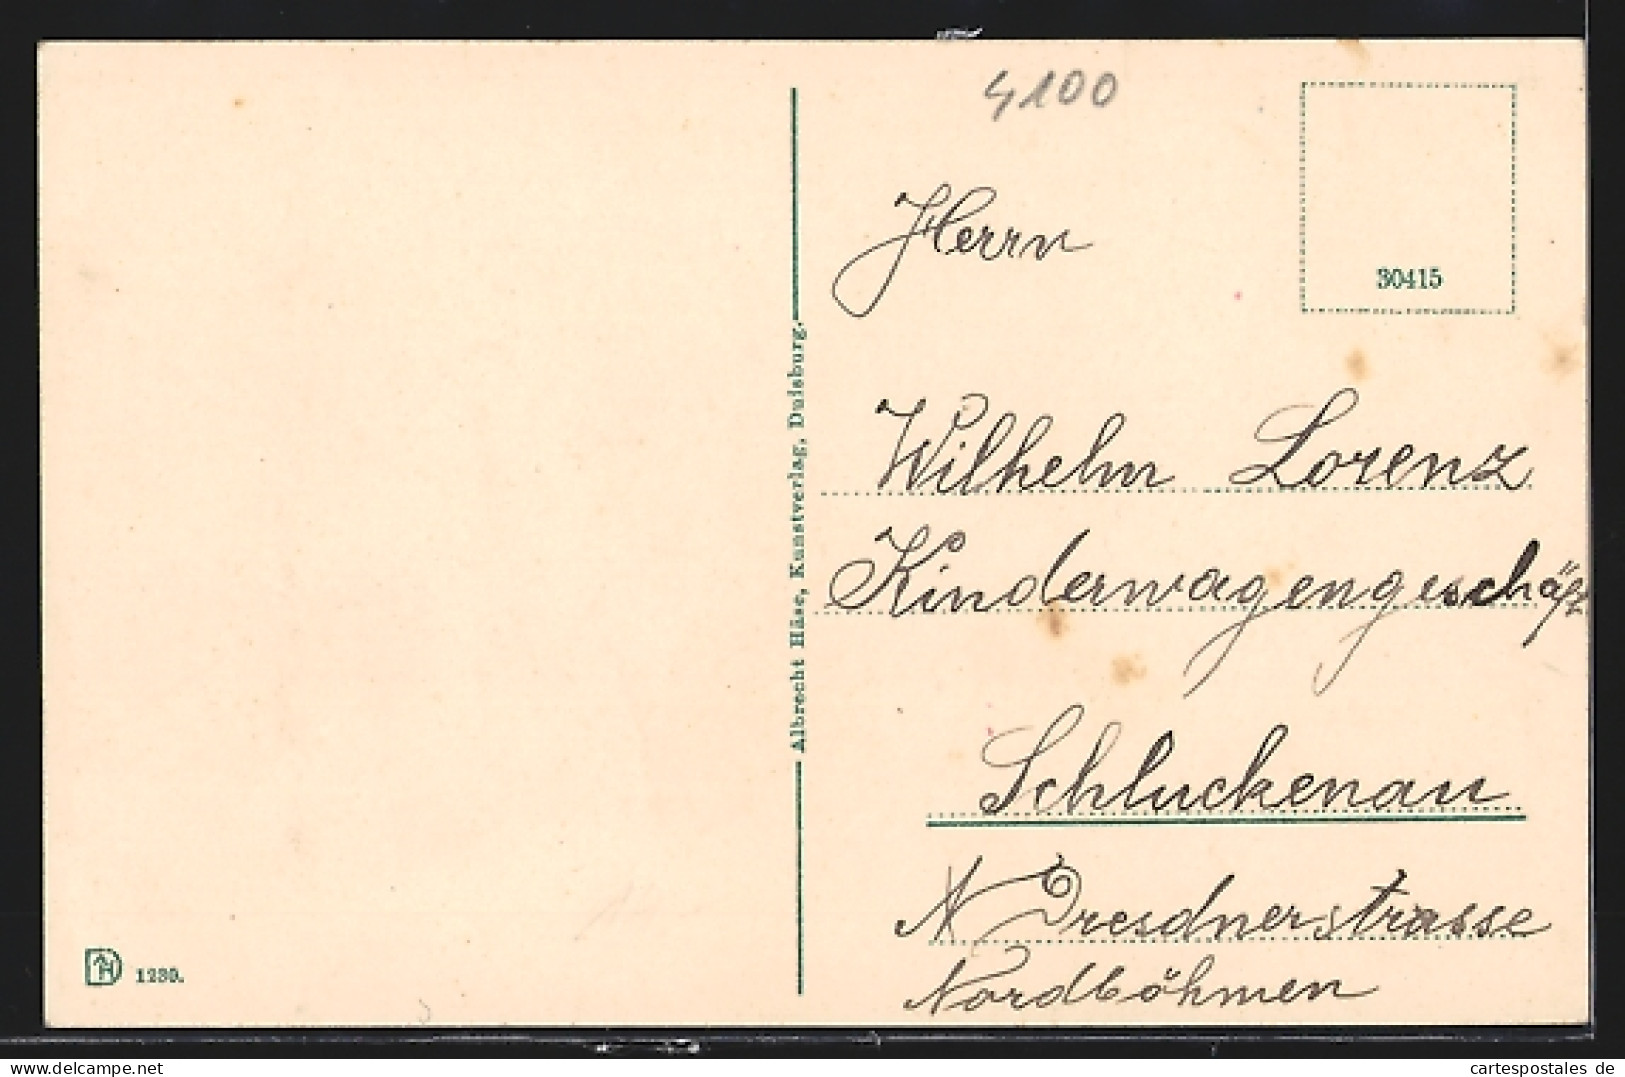 4100
30415
Herrn
Wilhelm Lorenz
Kinderwagengeschäft
Schluckenau
N Dresdnerstrasse
Nordböhmen
Albrecht Häse, Kunstverlag, Duisburg.
1230.
www.delcampe.net
cartespostales de